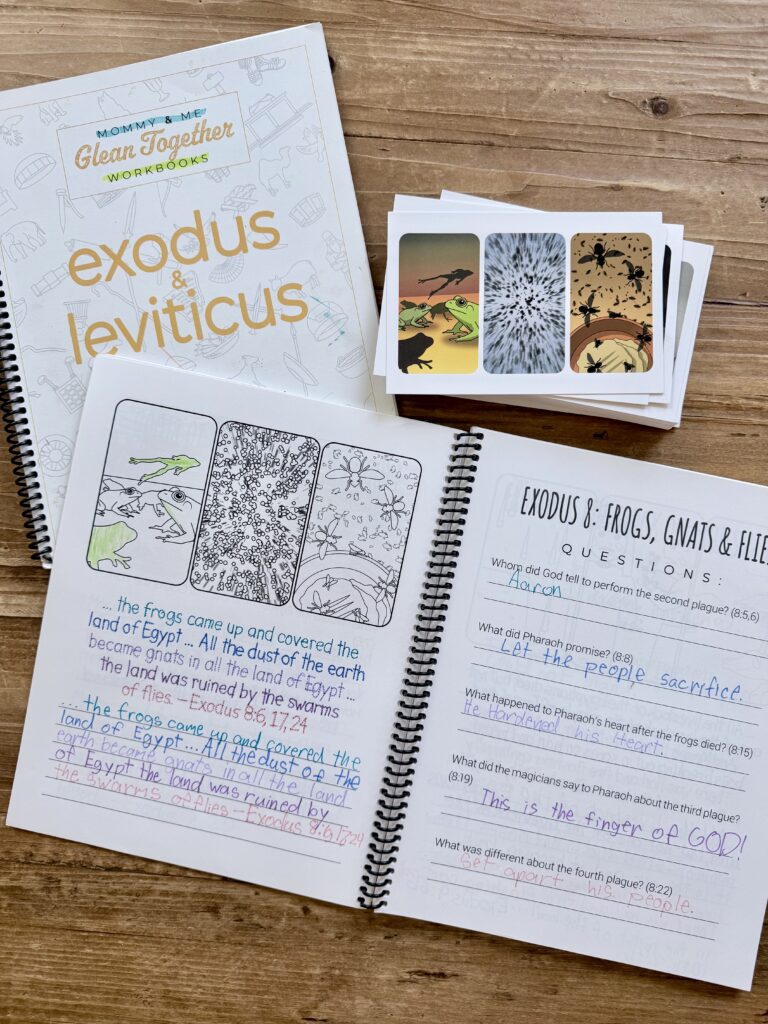 MOMMY & ME
Glean Together
WORKBOOKS
exodus
&
leviticus
... the frogs came up and covered the
land of Egypt ... All the dust of the earth
became gnats in all the land of Egypt ...
the land was ruined by the swarms
of flies. – Exodus 8:6, 17, 24
.... the frogs came up and covered the
land of Egypt ... All the dust of the
earth became gnats in all the land
of Egypt the land was ruined by
the swarms of flies – Exodus 8:6, 17, 24
EXODUS 8: FROGS, GNATS & FLIE
QUESTIONS:
Whom did God tell to perform the second plague? (8:5,6)
Aaron
What did Pharaoh promise? (8:8)
Let the people sacrifice.
What happened to Pharaoh's heart after the frogs died? (8:15)
He Hardened his Heart.
What did the magicians say to Pharaoh about the third plague?
(8:19)
This is the finger of GOD!
What was different about the fourth plague? (8:22)
Set apart his people.